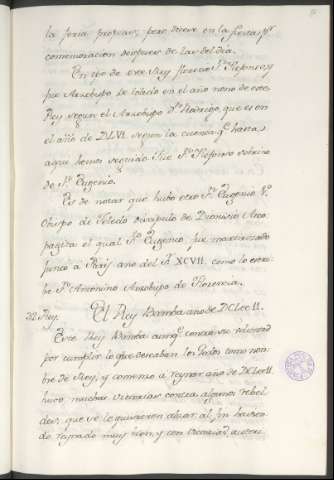 la feria propuar, pero dieve en la fiesta pr
comemoracion despues de las del dia.
En tpo de este Rey florecio Sn Ylefonso, y
fue Arzobispo de toledo en el año nono de este
Rey segun el Arzobispo Dn Rodrigo, que es en
el año de DLVI. segun la cuenta qe hasta
aqui hemos seguido. Fue Sn Ylefonso sobrino
de Sn Eugenio.
Es de notar que hubo otro Sn Eugenio 1º
Obispo de Toledo discipulo de Dionisio Areo
pagita el qual Sn Eugenio fue martirizado
junto a Paris año del Sr XCVII. como lo escri
be Sn Antonino Arzobispo de Florencia.
32 Rey. El Rey Bamba año de DCLxxII.
Este Rey Bamba aunqe contra su voluntad
por cumplir lo que deseaban los Godos tomo nom
bre de Rey, y comenzo a reynar año de DCLxxII.
hubo muchas victorias contra algunos rebel
des, que se le quisieron alzar, al fin havien
do reynado muy bien, y con trenidad, autori